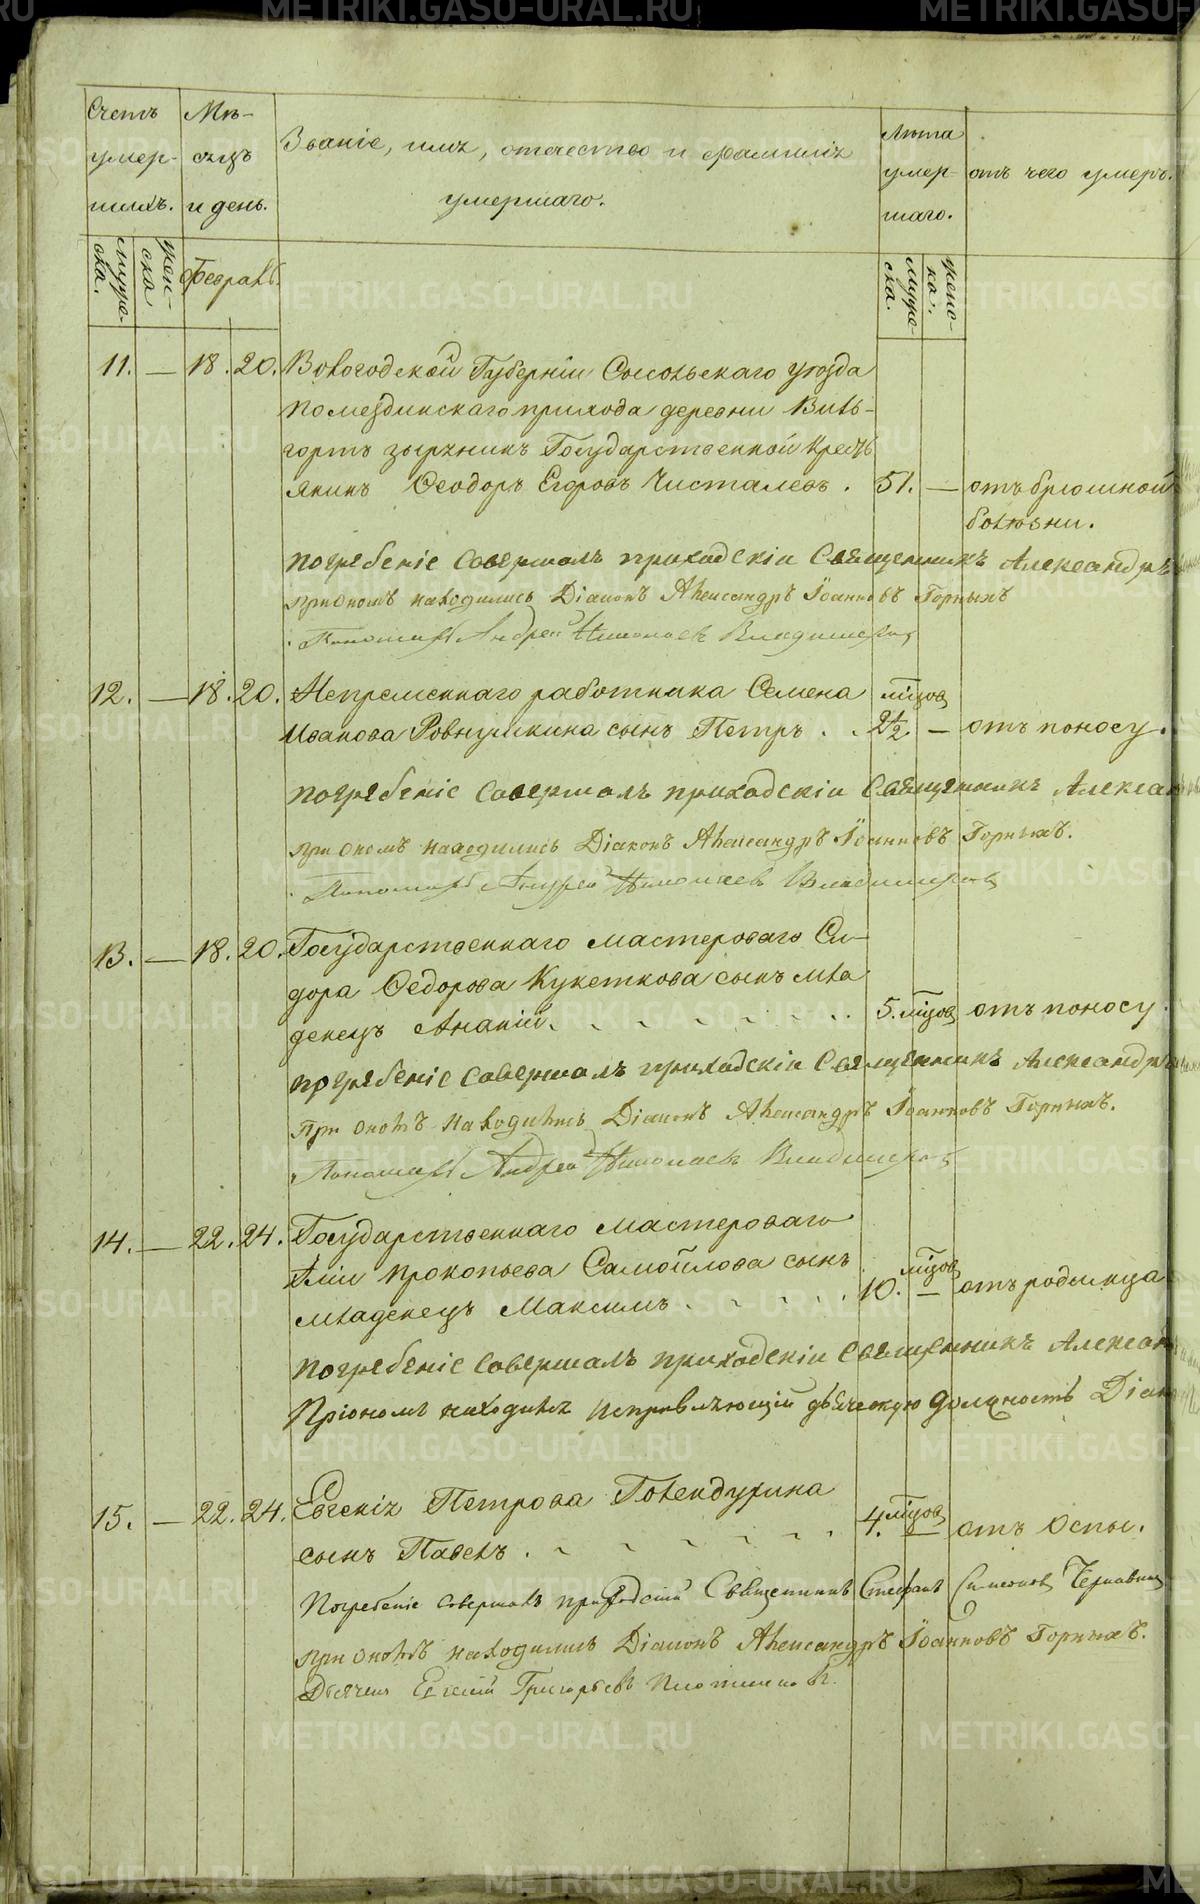 Счетъ умер- шихъ.
Мѣ- сяцъ и день.
Званіе, имя, отечество и фамилія умершаго.
Лѣта умер- шаго.
отъ чего умеръ.
муже- ска.
жен- ска
Февраль.
муже- ска.
женс- ка.
11. — 18. 20. Вологодской Губерніи Сысольскаго уѣзда
Помездинскаго прихода деревни Виль-
гортъ зырянинъ Государственной кресть
янинъ Ѳеодоръ Егоровъ Чисталевъ. 51. — отъ брюшной
болѣзни.
погребеніе Совершалъ приходскіи Священникъ Александръ
при ономъ находились Діаконъ Александръ Іоанновъ Горныхъ
Пономарь Андрей Николаевъ Владимировъ
12. — 18. 20. Непременнаго работника Семена мѣсяцов
Иванова Ровнушкина сынъ Петръ . . 2½ — отъ поносу.
погребеніе Совершалъ приходскіи Священникъ
при ономъ находились Діаконъ Александръ Іоанновъ Горныхъ.
Пономарь Андрей Николаевъ Владимировъ
13. — 18. 20. Государственнаго мастероваго Си-
дора Ѳедорова Кукеткова сынъ мла
денецъ Ананій. 5. мѣсяцов отъ поносу.
погребеніе Совершалъ приходскіи Священникъ Александръ
При ономъ находились Діаконъ Александръ Іоанновъ Горныхъ.
Пономарь Андрей Николаевъ Владимировъ
14. — 22. 24. Государственнаго мастероваго
Прокопьева Самойлова сынъ мѣсяцов
младенецъ Максимъ. 10. — отъ родимца
погребеніе Совершалъ приходскіи Священникъ
При ономъ находился исправляющій дьяческую должность
15. — 22. 24. Евгенія Петрова Голендухина мѣсяцов
сынъ Павелъ. 4. — отъ Оспы.
Погребеніе совершалъ приходскій Священникъ Стефанъ Симеонов
при ономъ находились Діаконъ Александръ Іоанновъ Горныхъ.
Дьячекъ Евгеній Григорьевъ
METRIKI.GASO-URAL.RU